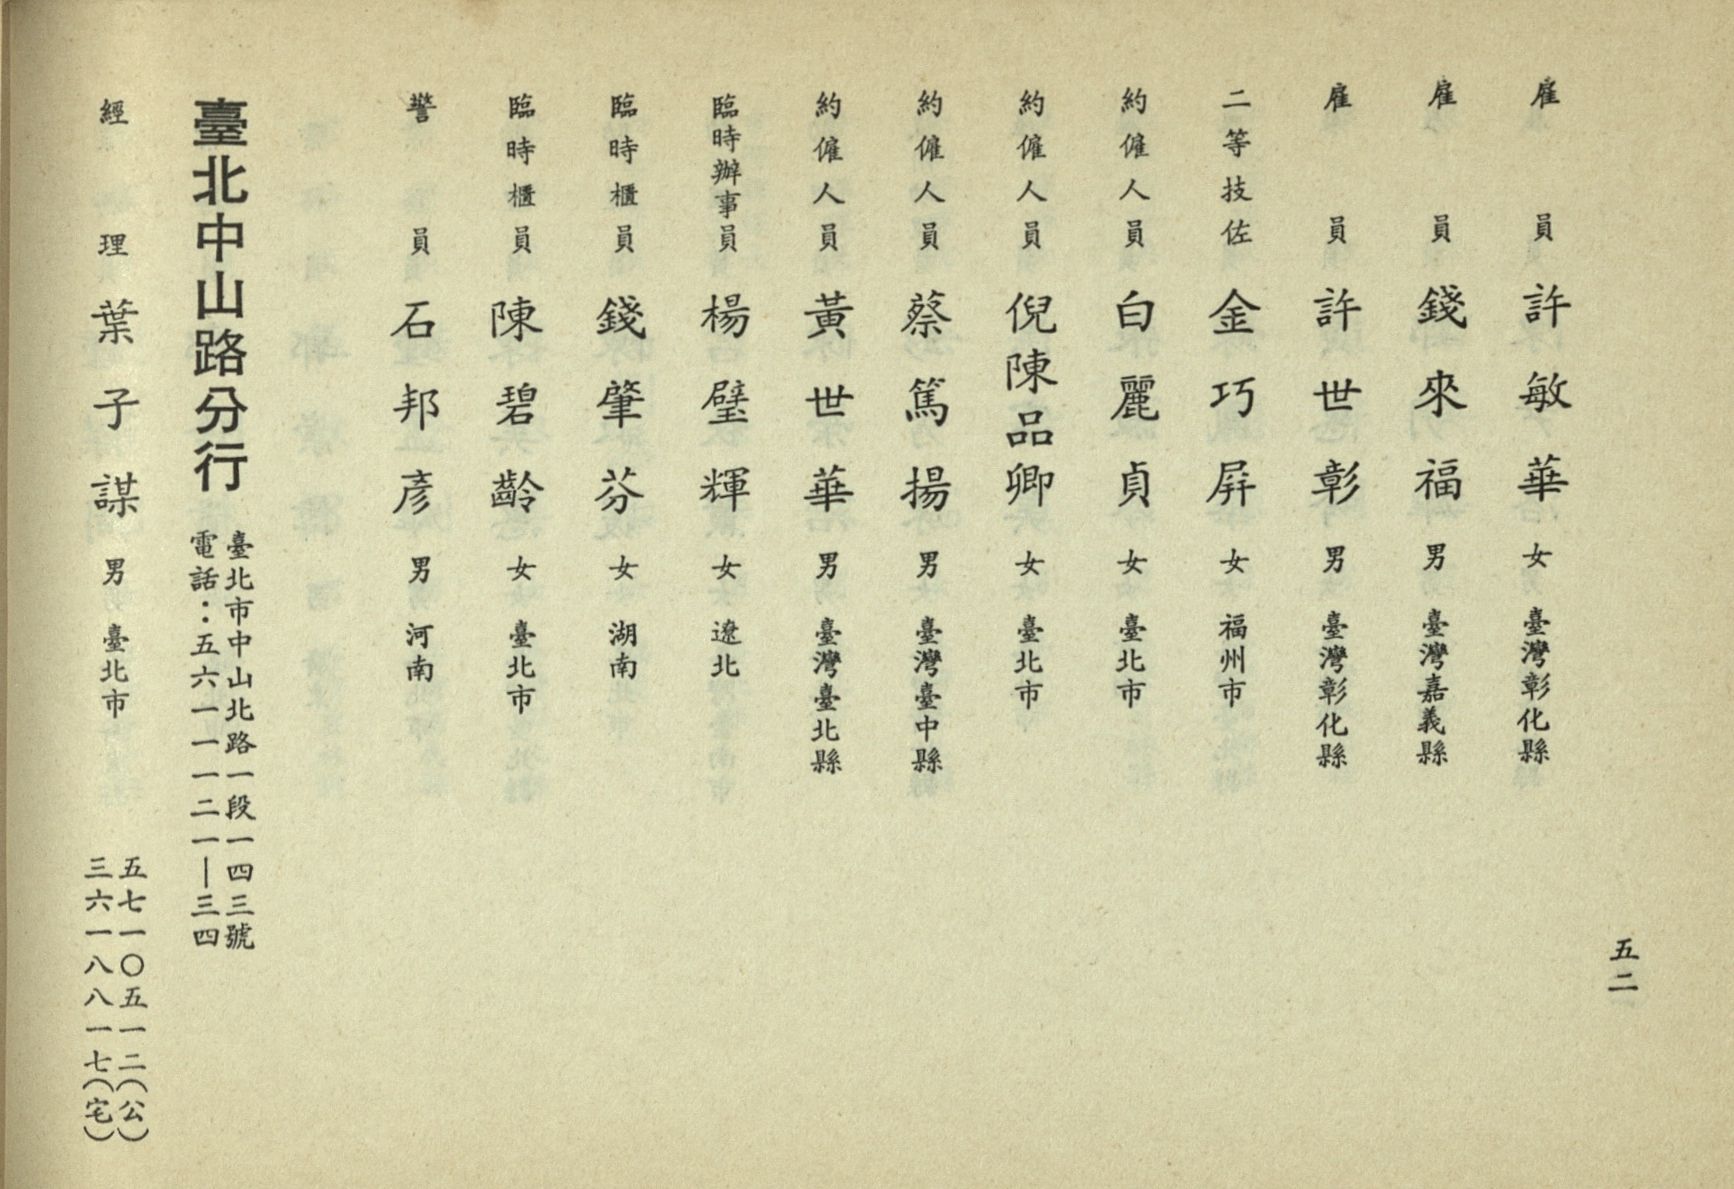 五二
雇員 許敏華 女 臺灣彰化縣
雇員 錢來福 男 臺灣嘉義縣
雇員 許世彰 男 臺灣彰化縣
二等技佐 金巧屏 女 福州市
約僱人員 白麗貞 女 臺北市
約僱人員 倪陳品卿 女 臺北市
約僱人員 蔡篤揚 男 臺灣臺中縣
約僱人員 黃世華 男 臺灣臺北縣
臨時辦事員 楊璧輝 女 遼北
臨時櫃員 錢肇芬 女 湖南
臨時櫃員 陳碧齡 女 臺北市
警員 石邦彥 男 河南
臺北中山路分行
臺北市中山北路一段一四三號
電話：五六一一一二一—三四
經理 葉子謀 男 臺北市
五七一〇五一二(公)
三六一八八一七(宅)